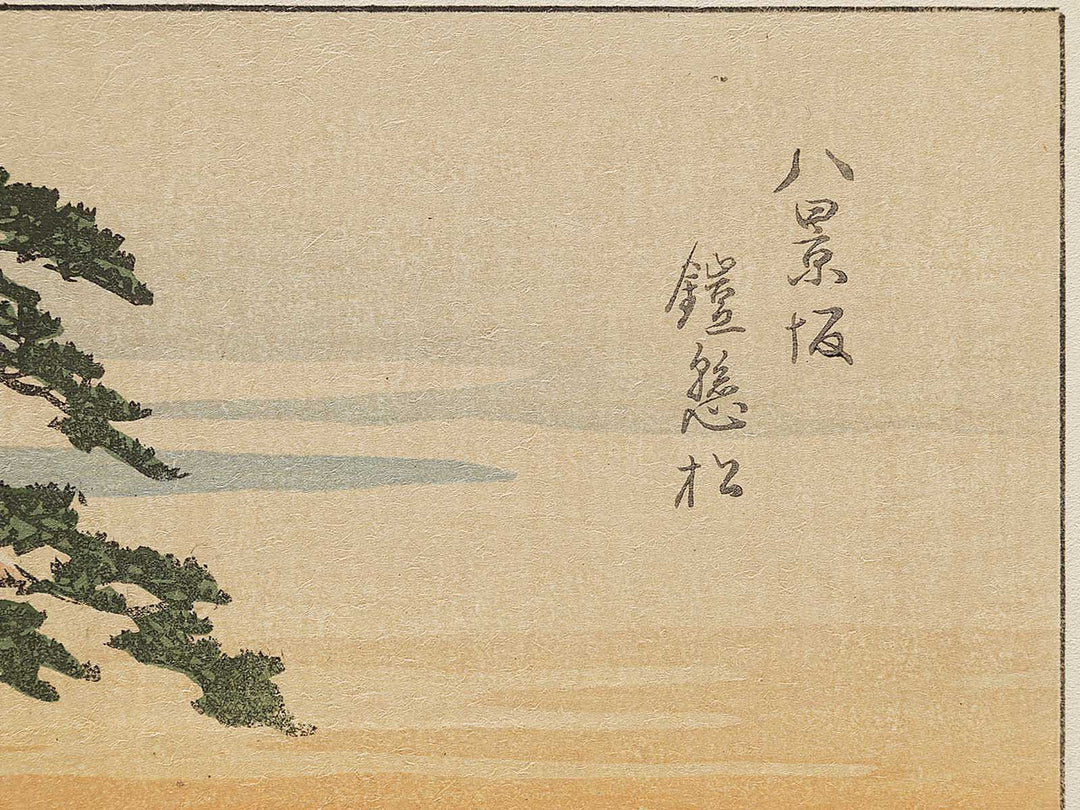 八景坂
鎧懸松